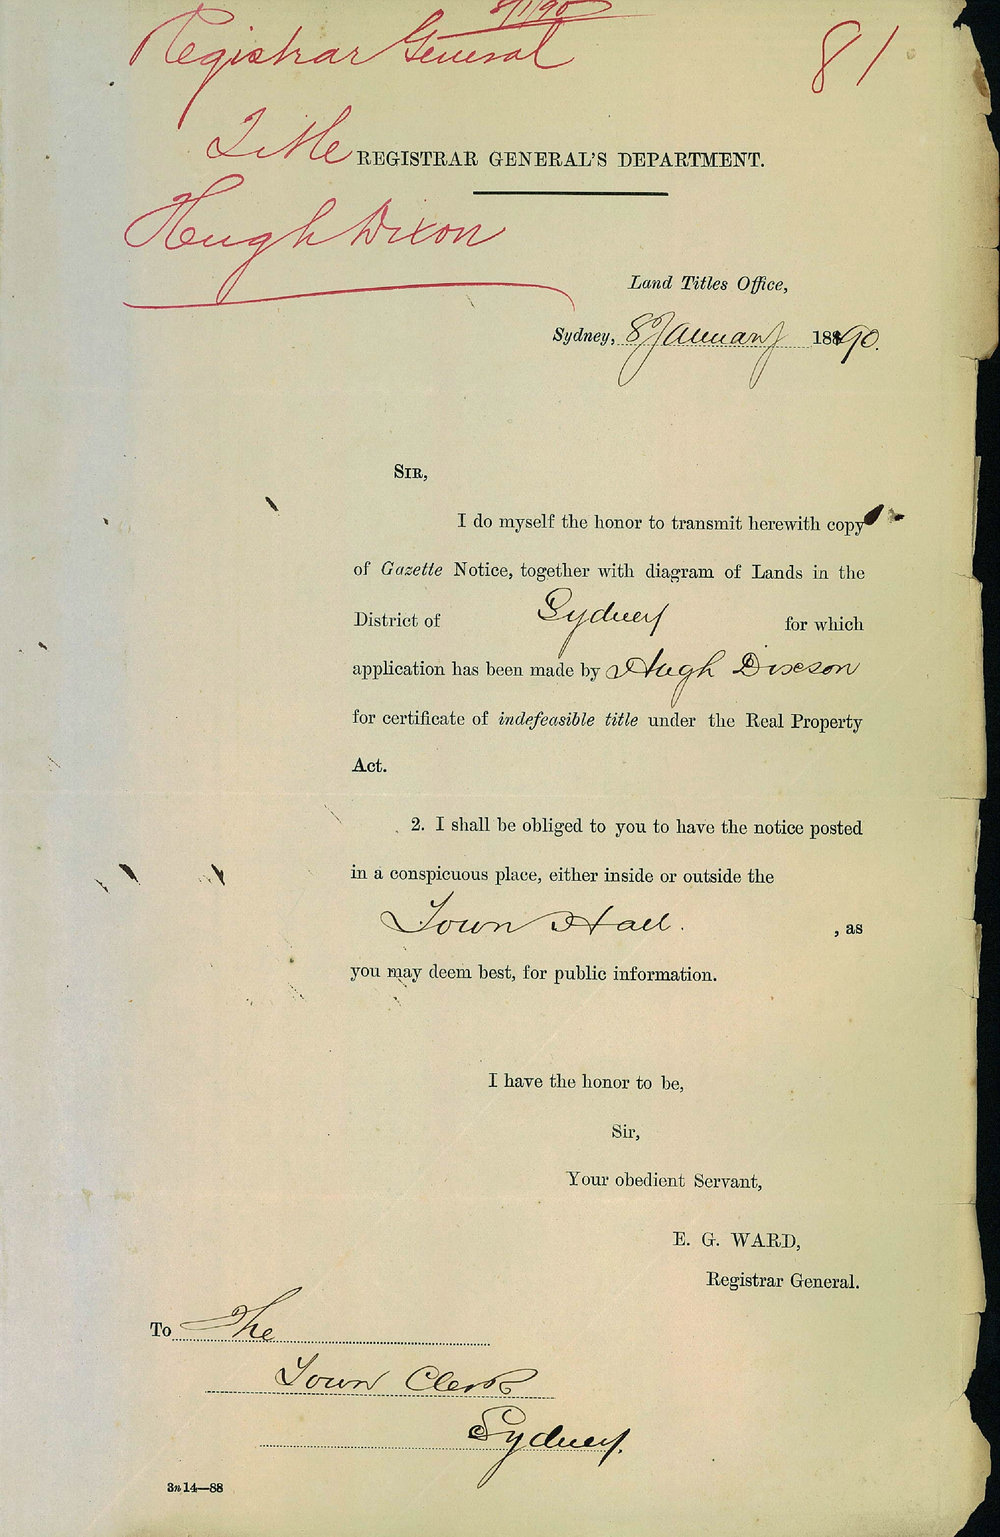 8/1/90
Registrar General
81
Title
REGISTRAR GENERAL'S DEPARTMENT.
Hugh Dixon
Land Titles Office,
Sydney, 8 January 18890.
SIR,
I do myself the honor to transmit herewith copy
of Gazette Notice, together with diagram of Lands in the
District of Sydney for which
application has been made by Hugh Dixson
for certificate of indefeasible title under the Real Property
Act.
2. I shall be obliged to you to have the notice posted
in a conspicuous place, either inside or outside the
Town Hall. , as
you may deem best, for public information.
I have the honor to be,
Sir,
Your obedient Servant,
E. G. WARD,
Registrar General.
To The
Town Clerk
Sydney.
3n 14—88